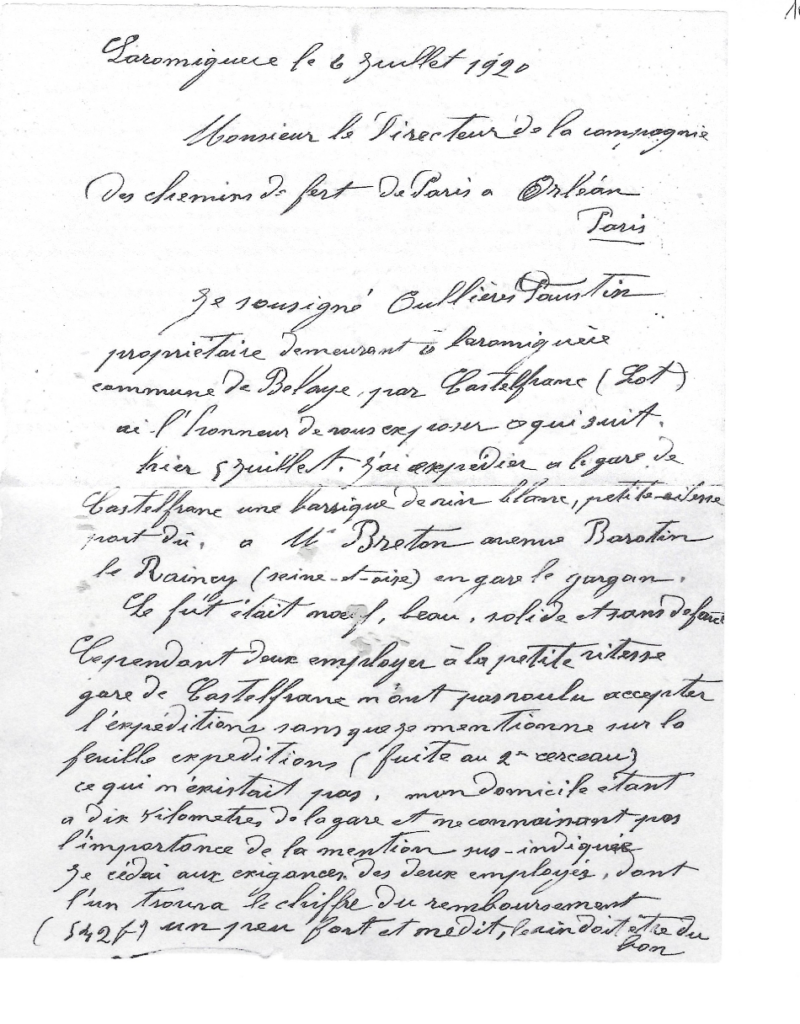 Laromiguere le 6 Juillet 1920
Monsieur le Directeur de la compagnie
des chemins de fert de Paris a Orléan
Paris
Je sousigné Cullières Faustin
propriètaire demeurant à laromiguère
commune de Belaye, par Castelfranc (Lot)
ai l'honneur de vous exposer ce qui suit.
hier 5 Juillet. J'ai expédier a la gare de
Castelfranc une barrique de vin blanc, petite vitesse
port dû, a Mr Breton avenue Baratin
le Raincy (seine-et-oise) en gare le gargan.
Le fût était noeuf, beau, solide et sans defaut
Cependant deux employer à la petite vitesse
gare de Castelfranc n'ont pas voulu accepter
l'expéditions sans que je mentionne sur la
feuille expeditions (fuite au 2e cerceau)
ce qui n'éxistait pas. mon domicile étant
a dix Kilometres de la gare et ne connaissant pas
l'importance de la mention sus-indiquée
Je cédai aux exigances des deux employés, dont
l'un trouva le chiffre du remboursement
(542 f) un peu fort et me dit, le vin doit être du
bon